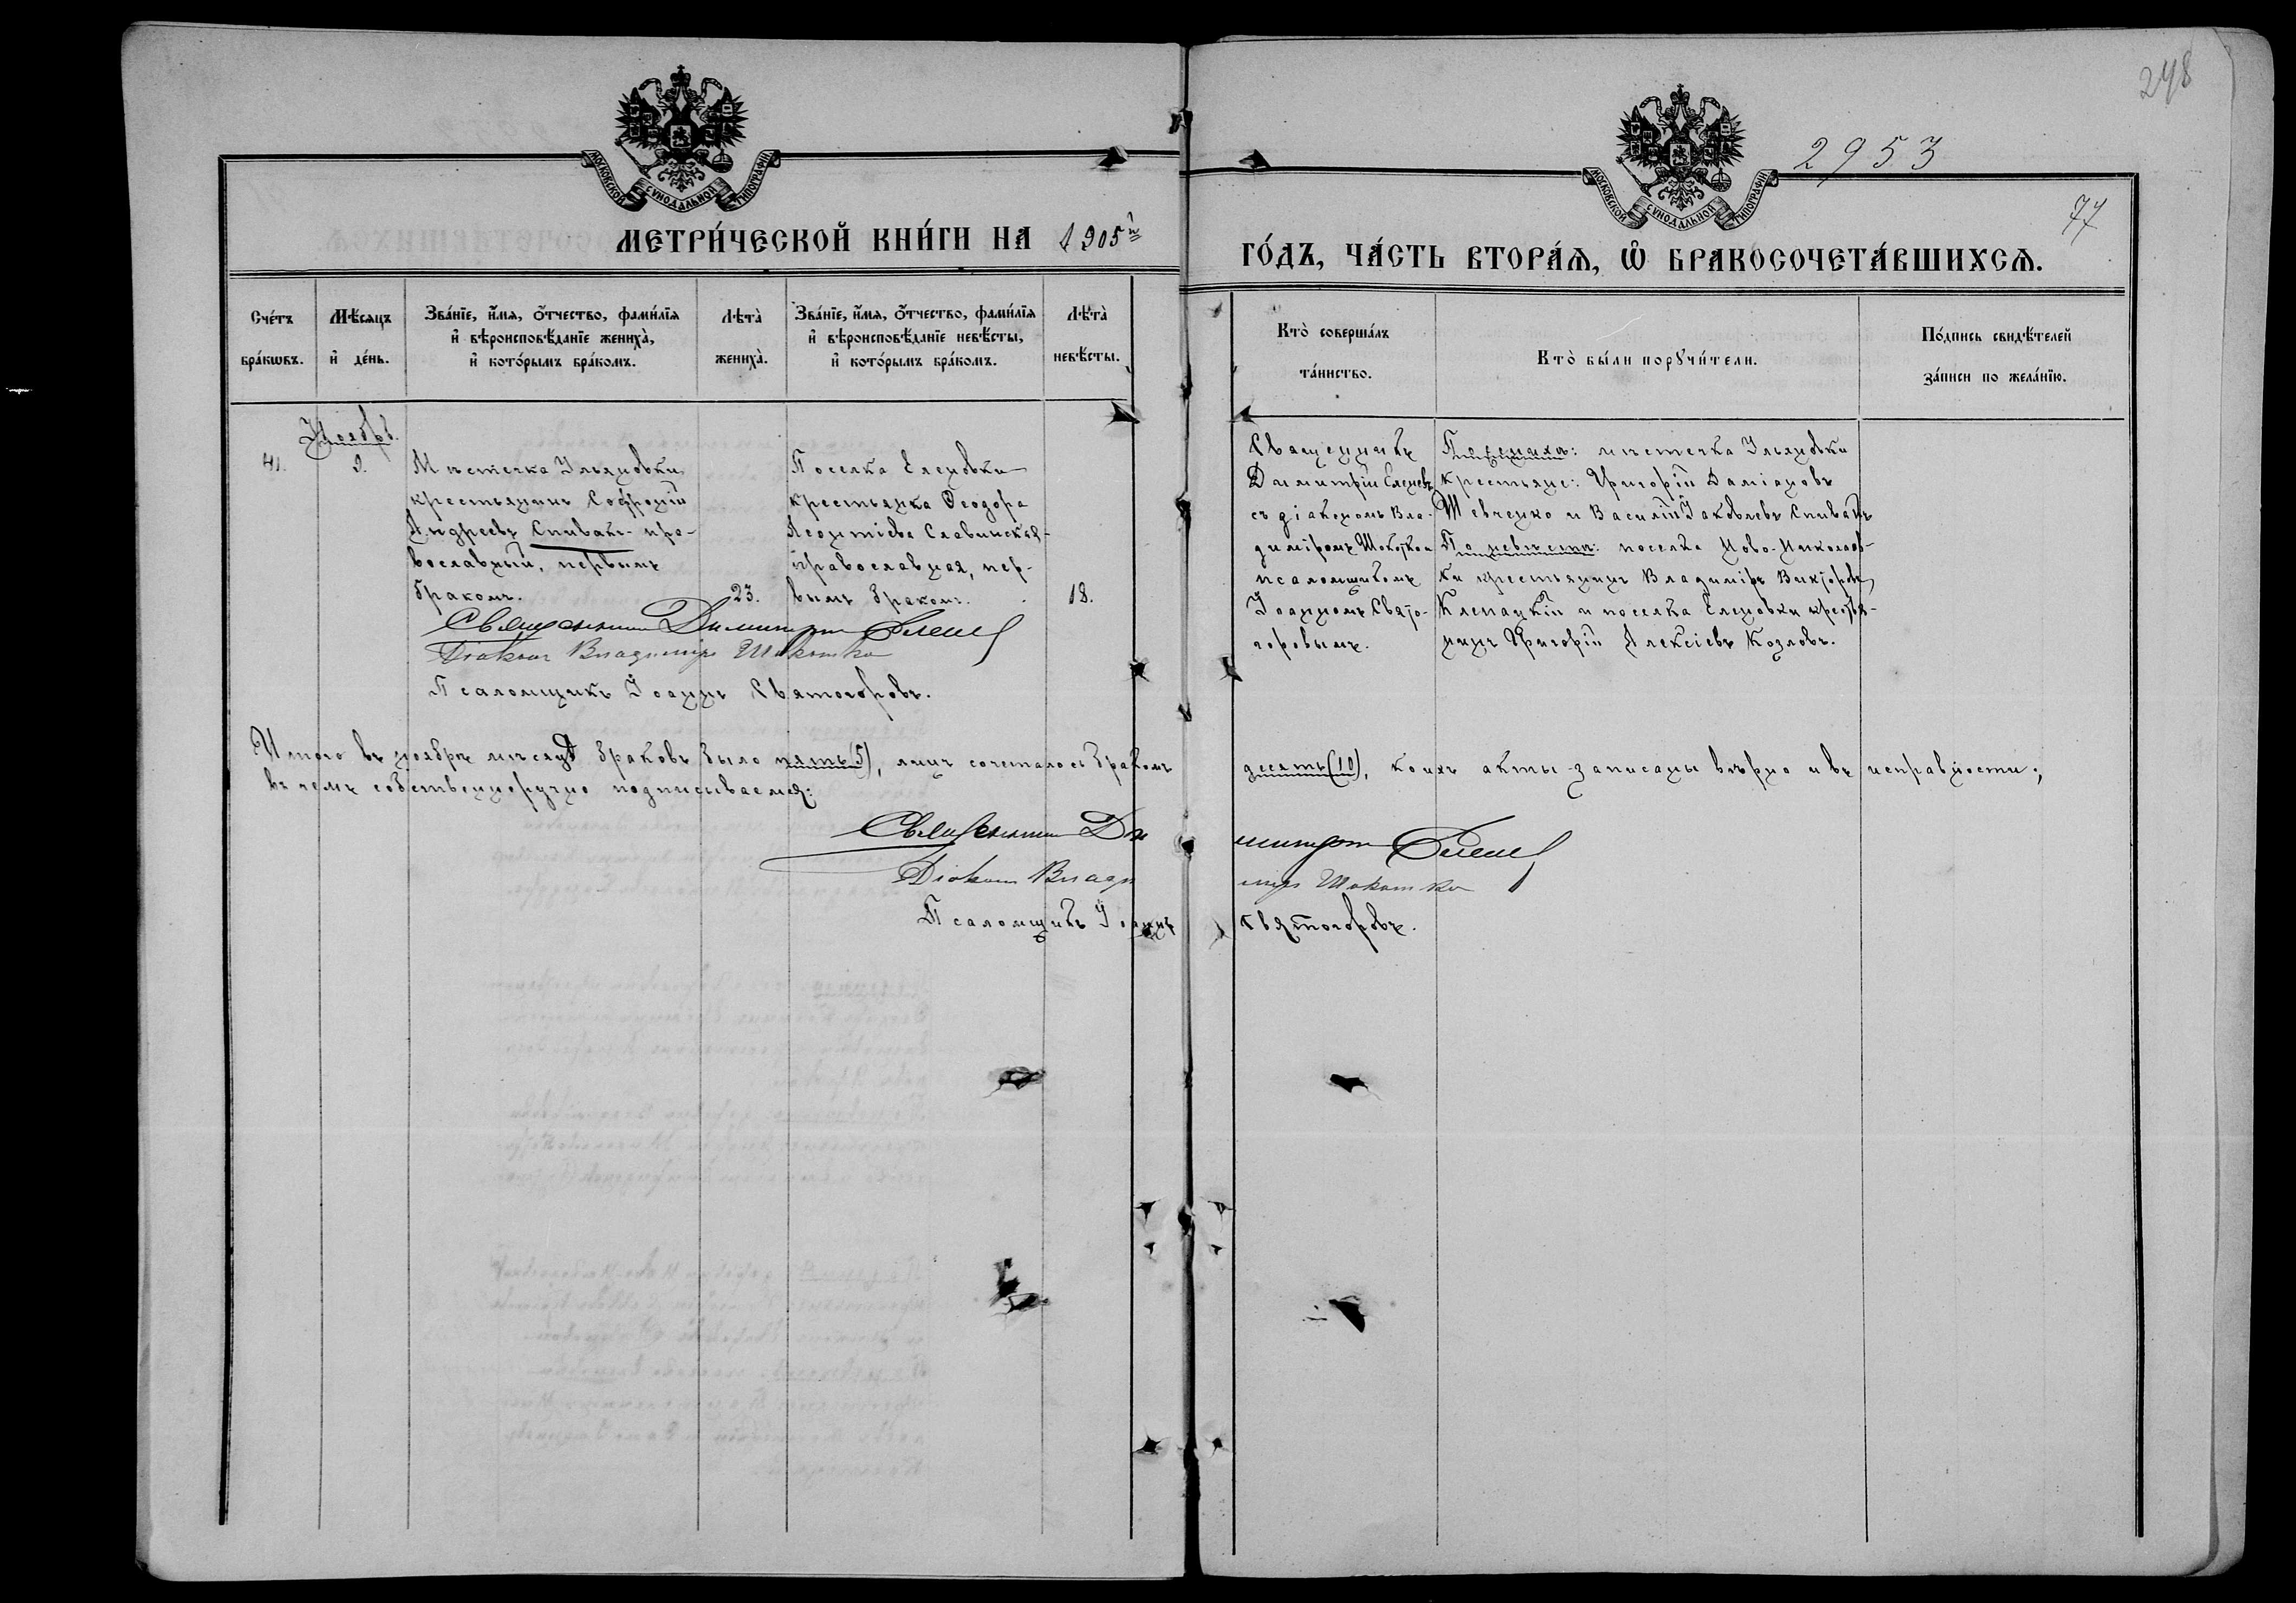 248
2953
77
МОСКОВСКОЙ СУНОДАЛЬНОЙ ТИПОГРАФІИ
МОСКОВСКОЙ СУНОДАЛЬНОЙ ТИПОГРАФІИ
МЕТРИ́ЧЕСКОЙ КНИ́ГИ НА 1905й
ГО́ДЪ, ЧА́СТЬ ВТОРА́Ѧ, Ѽ БРАКОСОЧЕТА́ВШИХСѦ.
Сче́тъ бра́кωвъ.
Мѣ́сяцъ и҆ де́нь.
Зва́нїе, и҆́мя, о҆́тчество, фами́лїя
и҆ вѣроисповѣ́данїе жениха̀,
и҆ кото́рымъ бра́комъ.
Лѣта̀ жениха̀.
Зва́нїе, и҆́мя, о҆́тчество, фами́лїя
и҆ вѣроисповѣ́данїе невѣ́сты,
и҆ кото́рымъ бра́комъ.
Лѣта̀ невѣ́сты.
Кто̀ соверша́лъ
та́инство.
Кто̀ бы́ли порꙋчи́тели.
По́дпись свидѣ́телей
за́писи по жела́нїю.
Ноябрь.
41.
9.
Мѣстечка Ульяновки
крестьянинъ Софроній
Андреевъ Спивакъ пра-
вославный, первымъ
бракомъ.
23.
Поселка Еленовки
крестьянка Ѳеодора
Леонтіева Славинская-
православная, пер-
вымъ бракомъ.
18.
Священникъ
Димитрій Еленевъ
съ діакономъ Вла-
диміромъ Шокоткой
псаломщикомъ
Іоанномъ Свято-
горовымъ.
По женихѣ: мѣстечка Ульяновки
крестьяне: Григорій Даміановъ
Шевченко и Василій Іаковлевъ Спивакъ
По невѣстѣ: поселка Ново-Николаев-
ки крестьянинъ Владиміръ Викторовъ
Клепацкій и поселка Еленовки крестья-
нинъ Григорій Алексіевъ Козловъ.
Священникъ Димитрій Еленев
Діаконъ Владиміръ Шокотко
Псаломщикъ Іоаннъ Святогоровъ.
Итого въ ноябрѣ мѣсяцѣ браковъ было пять (5), лицъ сочеталось бракомъ десять (10), коихъ акты записаны вѣрно и въ исправности;
въ чемъ собственноручно подписываемся:
Священникъ Димитрій Еленев
Діаконъ Владиміръ Шокотко
Псаломщикъ Іоаннъ Святогоровъ.